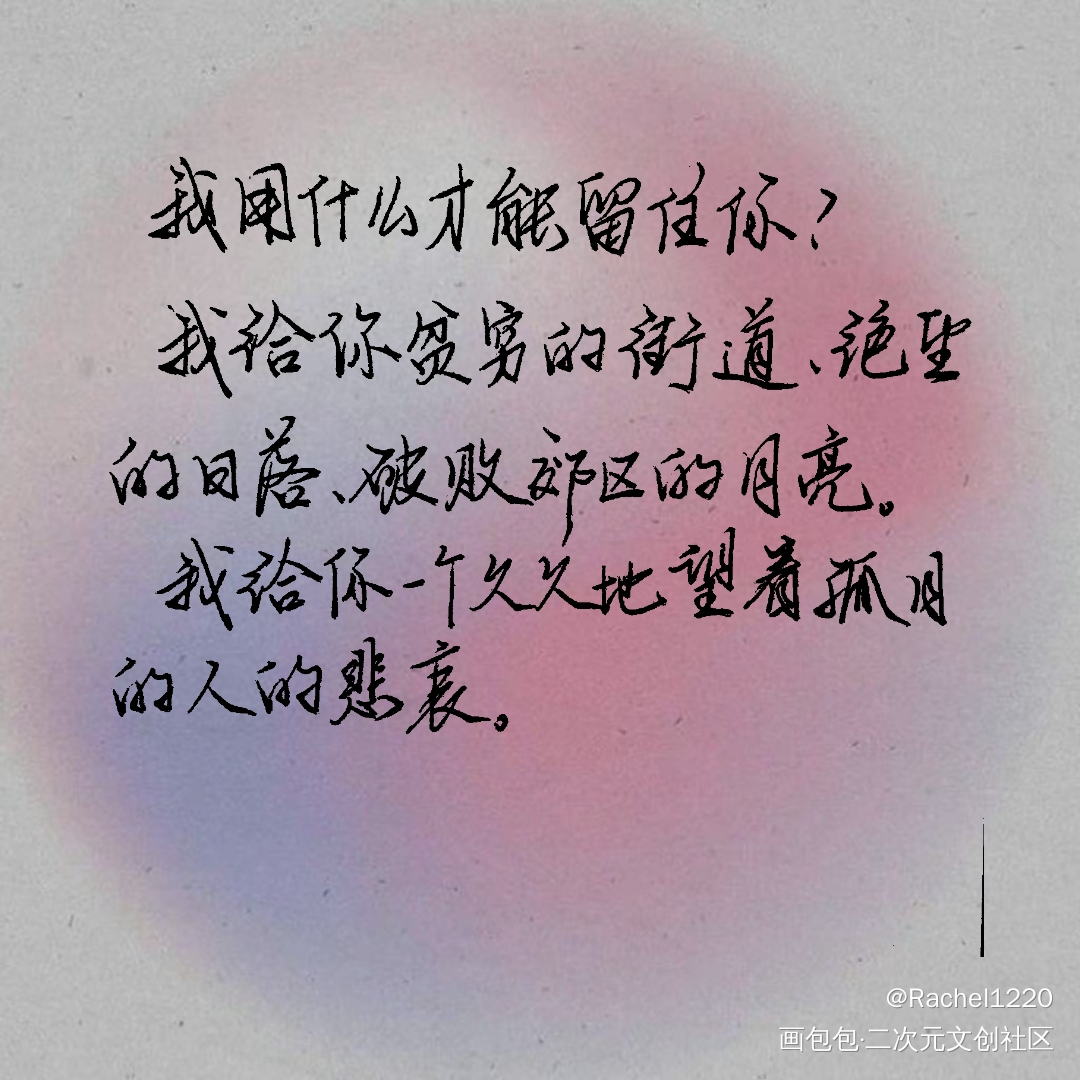 我用什么才能留住你？
我给你贫穷的街道、绝望
的日落、破败郊区的月亮。
我给你一个久久地望着孤月
的人的悲哀。
@Rachel1220
画包包·二次元文创社区